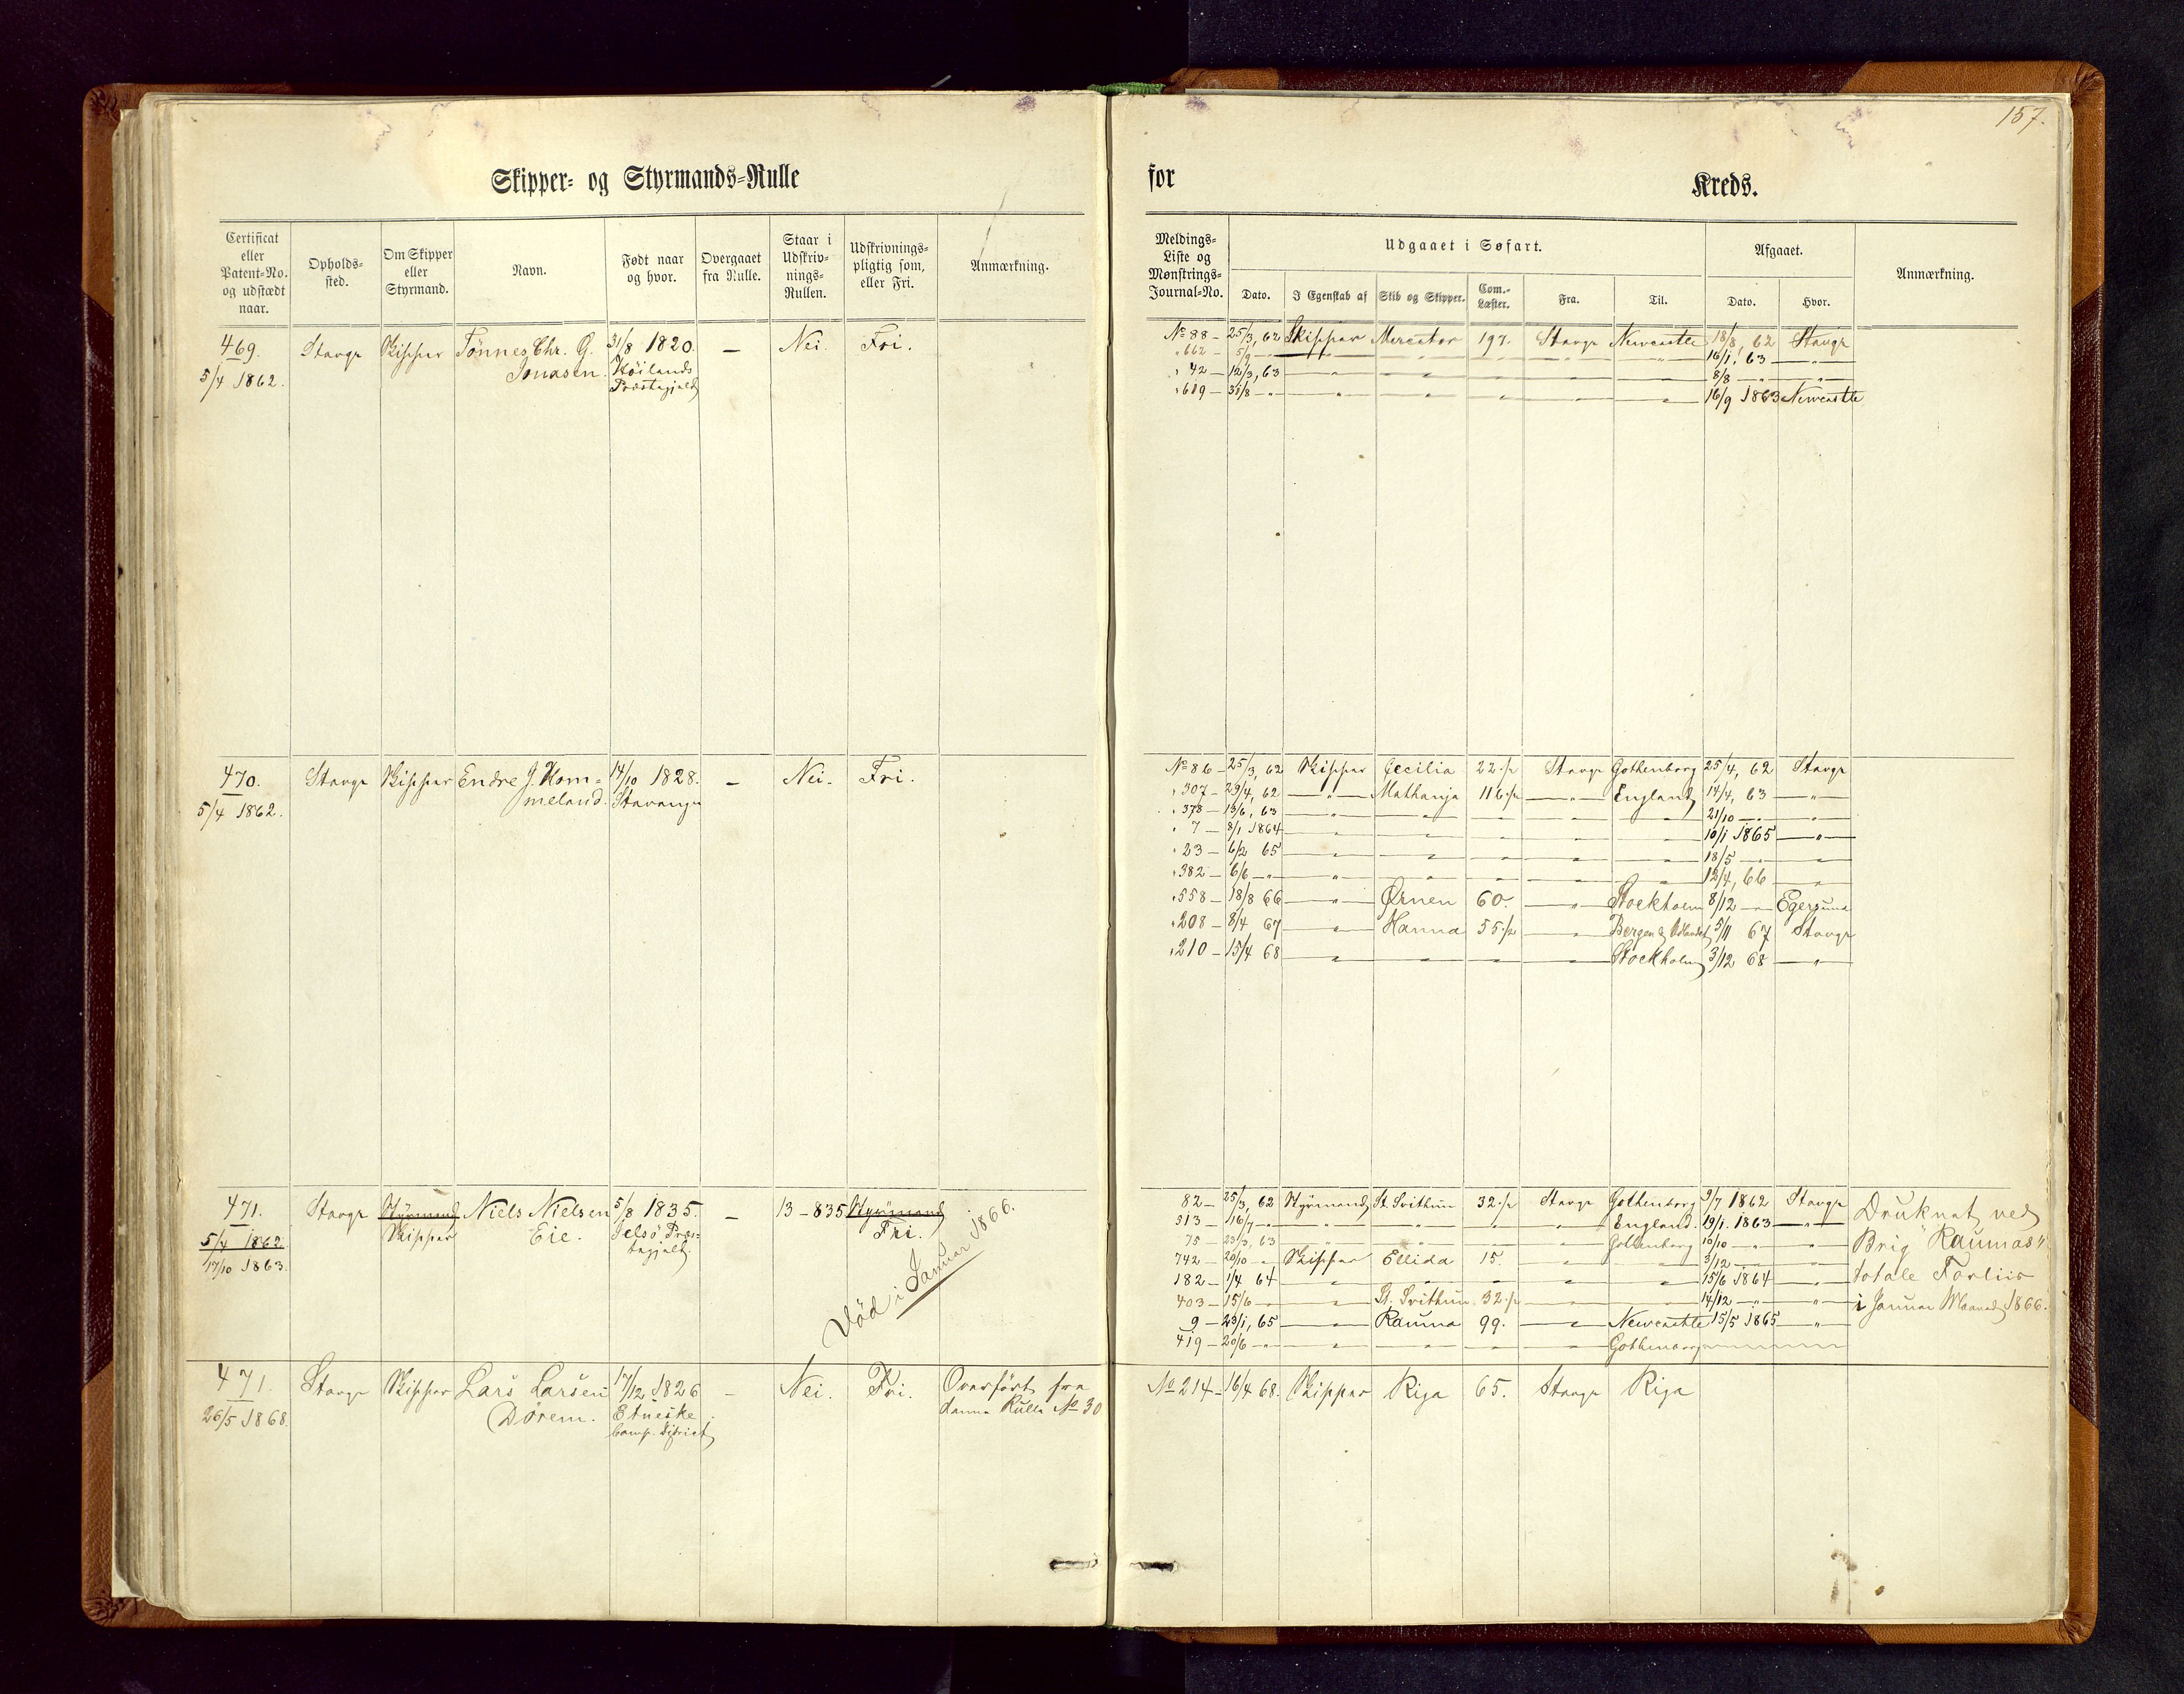 157.
Skipper- og Styrmands-Rulle for Kreds.
Certificat eller Patent-No. og udstædt naar. | Opholds-sted. | Om Skipper eller Styrmand. | Navn. | Født naar og hvor. | Overgaaet fra Rulle. | Staar i Udskriv-nings-Rullen. | Udskrivnings-pligtig som, eller Fri. | Anmærkning.
Meldings-Liste og Mønstrings-Journal-No. | Udgaaet i Søfart. | Afgaaet. | Anmærkning.
Dato. | I Egenskab af | Skib og Skipper. | Com.-Læster. | Fra. | Til. | Dato. | Hvor.
469. Stavgr Skipper Tönnes Chr. G. 31/8 1820. — Nei. Fri.
5/4 1862. Jonasen. Höilands
Præstegjæld
No 88 — 25/3, 62 Skipper Mercator 197. Stavgr Newcastle 18/8, 62 Stavgr
" 662 — 5/9 — " — " " " " " 16/1, 63 — " —
" 42 — 12/3, 63 — " — " " " " 8/8 — " — " —
" 619 — 31/8 — " — " — " " " " 16/9 1863 Newcastle
470. Stavgr Skipper Endre J. Hom- 14/10 1828. — Nei. Fri.
5/4 1862. meland. Stavanger
No 86 — 25/3, 62 Skipper Cecilia 22 ½ Stavgr Gothenborg 25/4, 62 Stavgr
" 307 — 29/4, 62 — " — Mathanja 116 ½ — " — England 14/4, 63 — " —
" 378 — 13/6, 63 — " — " " " " 21/10 — " — " —
" 7 — 8/1 1864 — " — " " " " 10/1 1865 — " —
" 23 — 6/2 65 — " — " " " " 18/5 — " — " —
" 382 — 6/6 — " — " — " " " " 12/4, 66 — " —
" 558 — 18/8 66 — " — Ørnen 60. — " — Stockholm 8/12 — " Egersund
" 208 — 8/4 67 — " — Hanna 55 ½ — " — Bergen & Udlandet 5/11 67 Stavgr
" 210 — 15/4 68 — " — " " — " — Stockholm 3/12 68 — " —
471. Stavgr Styrmand Niels Nielsen 5/8 1835. — 13 — 835 Styrmand
5/4 1862. Skipper Eie. Jelsö Præs- Fri.
17/10 1863. tegjæld.
Död i Januar 1866.
82 — 25/3, 62 Styrmand St. Svithun 32 ½ Stavgr Gothenborg 9/7 1862 Stavgr Druknet ved
513 — 16/7 — " — " " " " England. 19/1. 1863 — " —
75 — 23/3, 63 " " " " Gothenborg 10/10 — " — " — Brig "Raumas"
742 — 20/10 — " Skipper Ellida 15. — " — " 3/12 — " — " —
182 — 1/4 64 — " — " " " " 15/6 1864 — " — totale Forliis
403 — 15/6 — " — " — St. Svithun 32 ½ — " — " 14/12 — " — " — i Januar Maaned 1866.
9 — 23/1, 65 — " — Rauma 99. — " — Newcastle 15/5 1865 — " —
419 — 20/6 — " — " — " " " Gothenborg
471. Stavgr Skipper Lars Larsen 17/12 1826 — Nei. Fri. Overført fra
26/5 1868. Dörem. Etneske denne Rulle No 30
Comp. District
No 214 — 16/4 68. Skipper Riga 65. Stavgr Riga